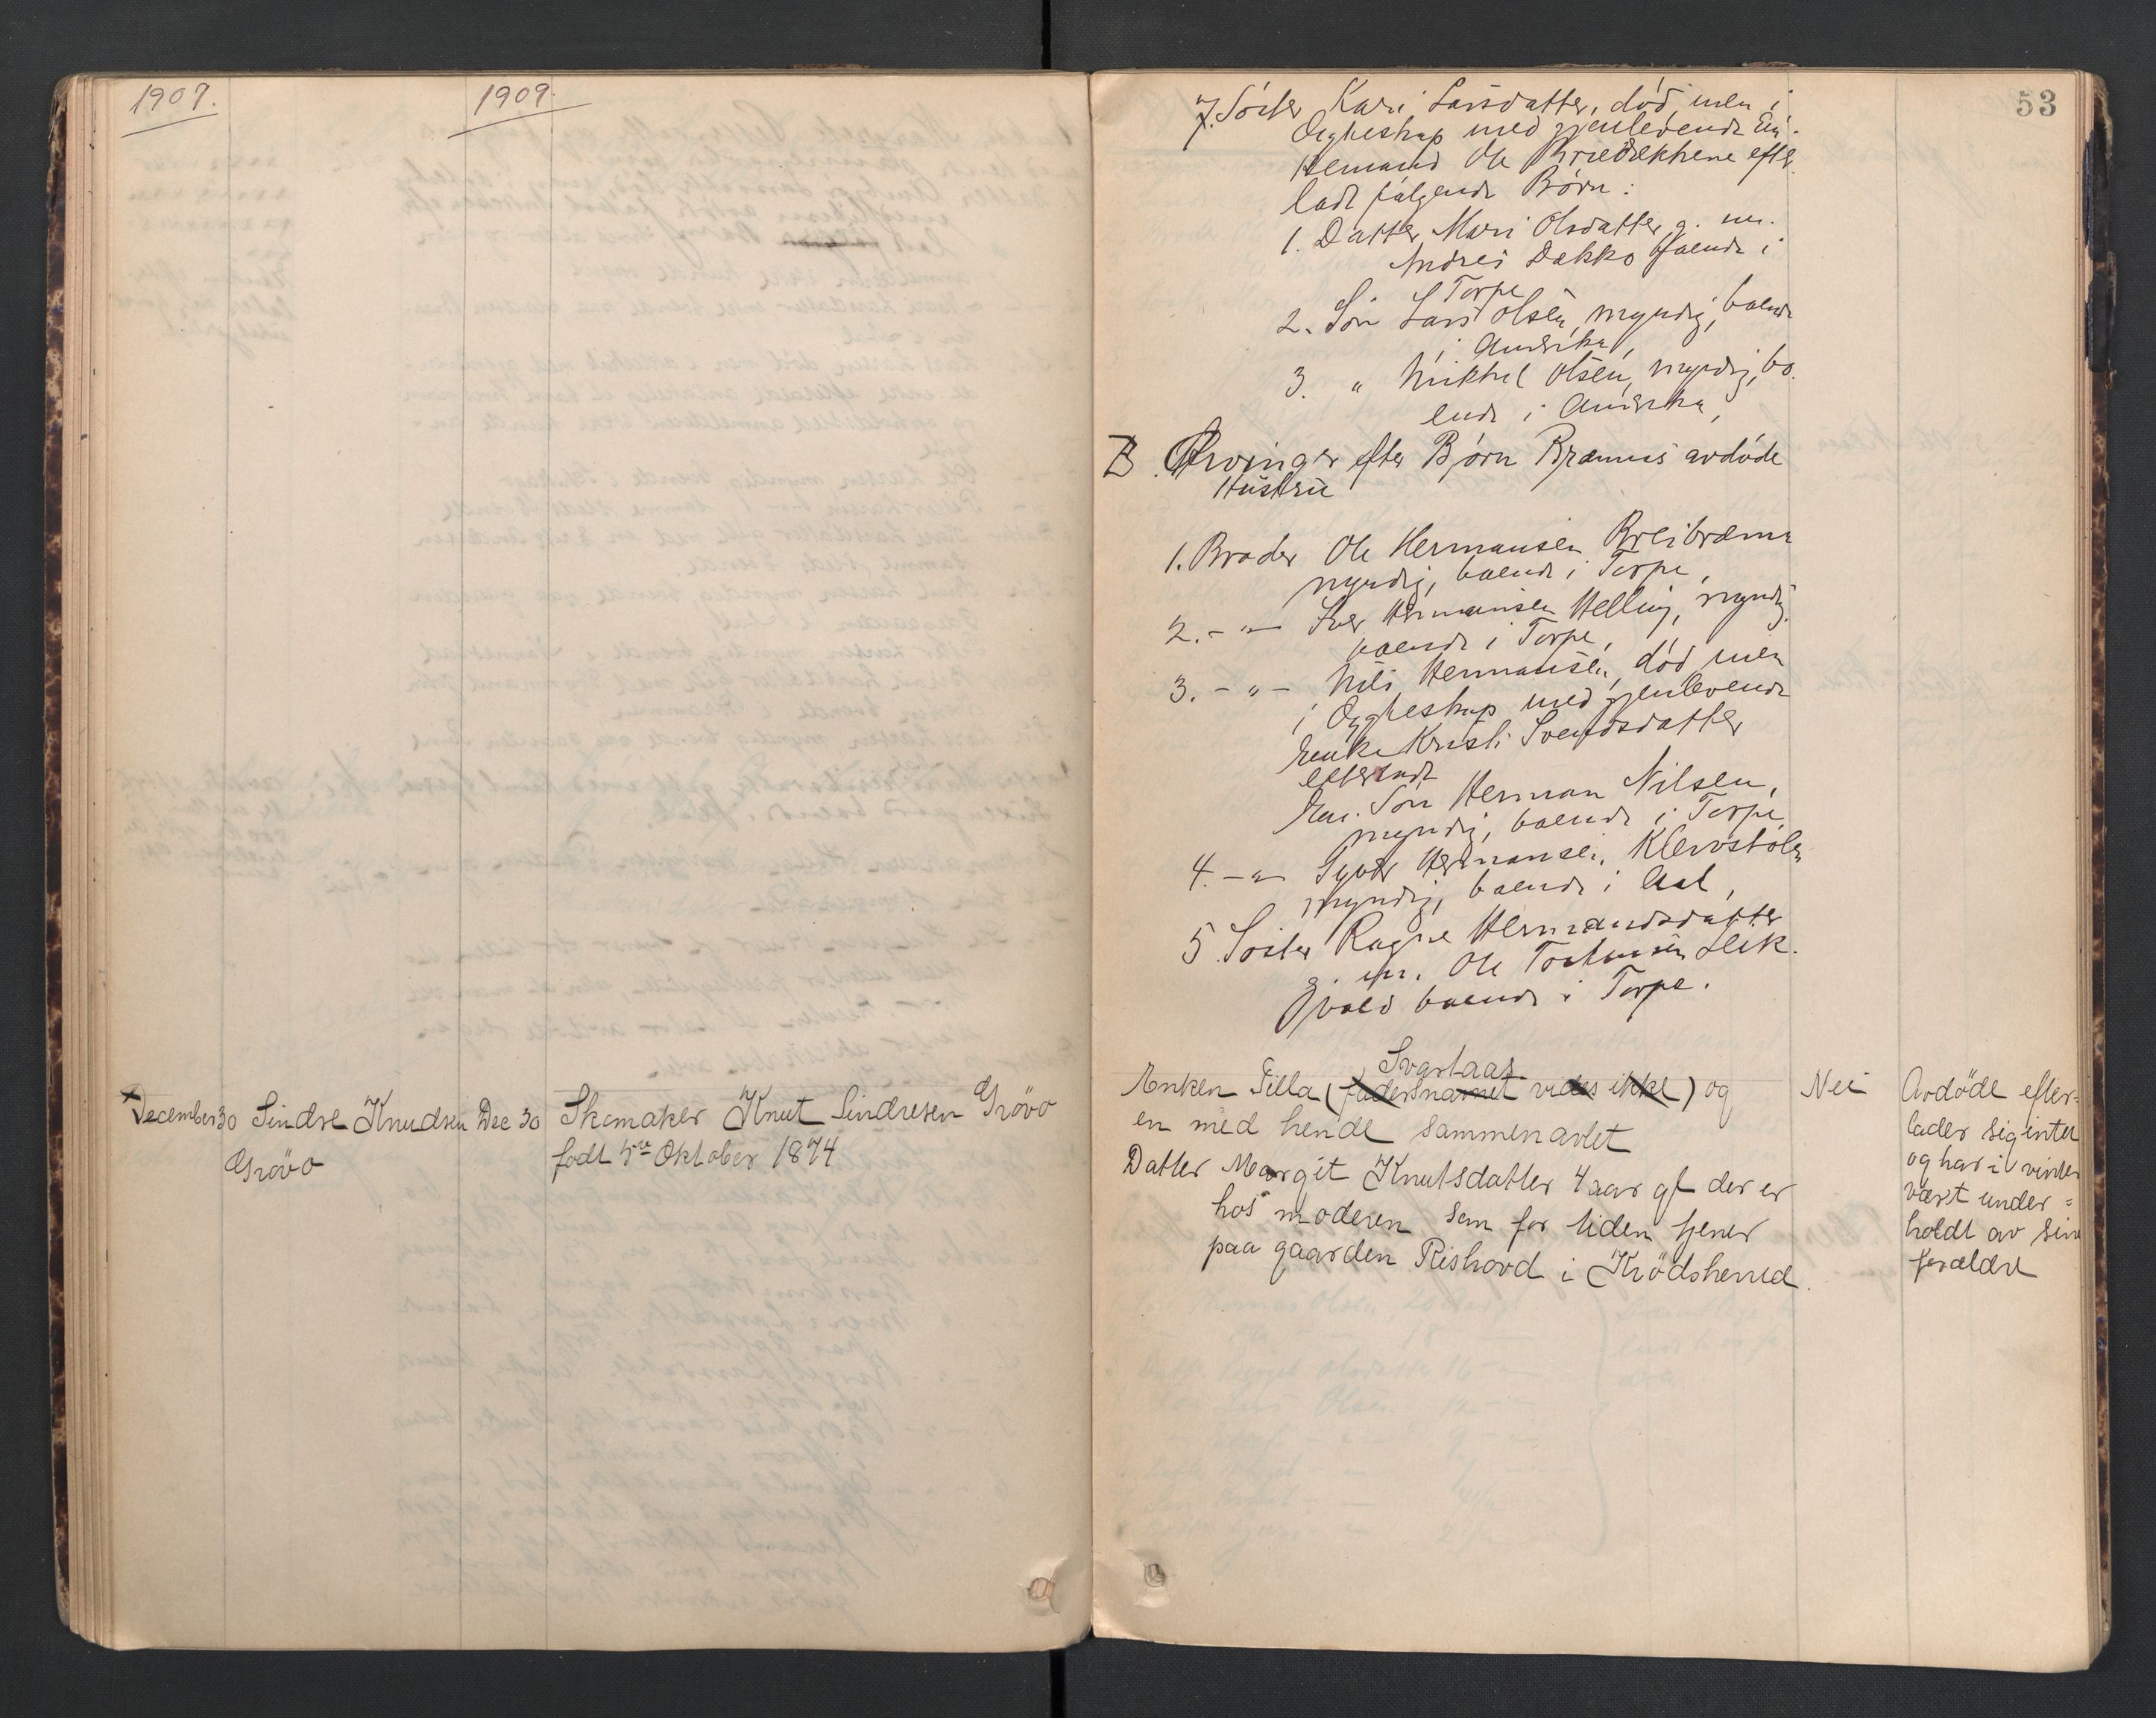 1909.
1909.
December 30 Sindre Knudsen Dec 30 Skomaker Knut Sindresen Grövo
Grövo
født 5te Oktober 1874
53
7. Söster Kari Larsdatter, död, men i
Ægteskap med gjenlevende
Ole efter
ladt følgende Börn:
1. Datter Mari Olsdatter g. m.
Andres Dekko boende i
Torpe
2. Sön Lars Olsen, myndig, boende
i Amerika,
3. " Mikkel Olsen, myndig, bo
ende i Amerika,
B. Arvinger efter Björn Bræmus avdöde
Hustru
1. Broder Ole Hermansen Breibræne
myndig, boende i Torpe,
2. - " - Iver Hermansen Helling, myndig
boende i Torpe,
3. - " - Nils Hermansen, död men
i Ægteskap med gjenlevende
Enke Kristi Svendsdatter
efterladt
Sön Herman Nilsen,
myndig, boende i Torpe
4. - " - Syver Hermansen Klevstölen
myndig, boende i Aal,
5. Söster Ragne Hermandsdatter
g. m. Ole Torstensen Leik
vold boende i Torpe.
Svartaas
Enken Silla (fadersnavnet vides ikke) og
en med hende sammenavlet
Datter Margit Knutsdatter 4 aar gl der er
hos moderen som for tiden tjener
paa gaarden Rishovd i Krödsherred.
Nei
Avdöde efter=
lader sig intet
og har i vinter
vært under=
holdt av sine
forældre